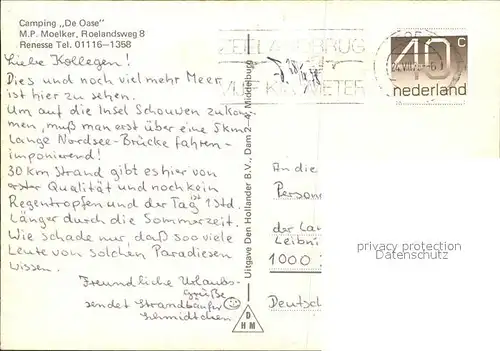 Camping „De Oase"
M.P. Moelker, Roelandsweg 8
Renesse Tel. 01116-1358
Liebe Kollegen!
Dies und noch viel mehr Meer
ist hier zu sehen.
Um auf die Insel Schouwen zukom-
men, muß man erst über eine 5 km
lange Nordsee-Brücke fahren-
imponierend!
30 km Strand gibt es hier von
erster Qualität und noch kein
Regentropfen und der Tag ist 1 Std.
Länger durch die Sommerzeit.
Wie schade nur, daß soo viele
Leute von solchen Paradiesen
wissen.
Freundliche Urlaubs-
grüße
sendet Strandläufer
Schmidtchen
Uitgave Den Hollander B.V., Dam 2-4, Middelburg
D
H M
ZEELANDBRUG
VIJF KILOMETER
40 c
nederland
An die
Person
der La
Leibni
1000
Deutsc
privacy protection
Datenschutz